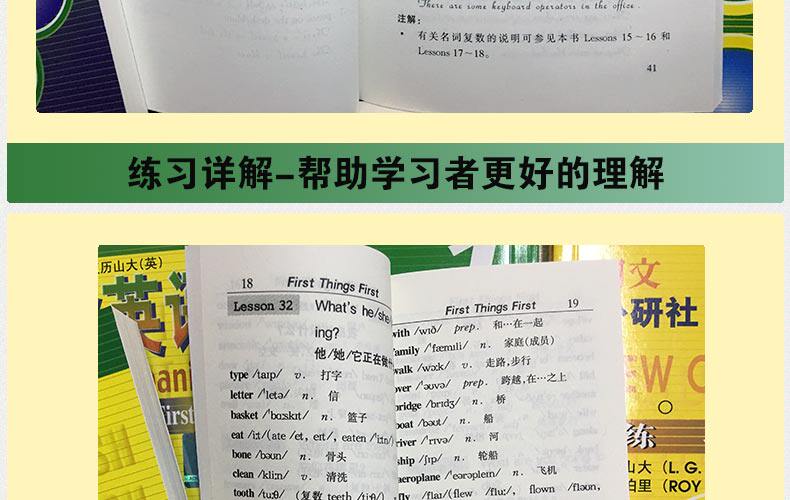 There are some keyboard operators in the office.
注解:
• 有关名词复数的说明可参见本书 Lessons 15～16 和
Lessons 17～18。
41
练习详解-帮助学习者更好的理解
历山大(英)
18 First Things First
Lesson 32 What's he/she
ing?
他/她/它正在做
type /taɪp/ v. 打字
letter /'letə/ n. 信
basket /'bɑːskɪt/ n. 篮子
eat /iːt/(ate /et, eɪt/, eaten /'iːtn/)
bone /bəʊn/ n. 骨头
clean /kliːn/ v. 清洗
tooth /tuːθ/ (复数 teeth /tiːθ/)
First Things First 19
with /wɪð/ prep. 和…在一起
family /'fæmɪli/ n. 家庭(成员)
walk /wɔːk/ v. 走路,步行
over /'əʊvə/ prep. 跨越,在…之上
bridge /brɪdʒ/ n. 桥
boat /bəʊt/ n. 船
river /'rɪvə/ n. 河
ship /ʃɪp/ n. 轮船
aeroplane /'eərəpleɪn/ n. 飞机
fly /flaɪ/(flew /fluː/, flown /fləʊn,
英语
First
文
研社
EW C
练
山大 (L. G.
柏里 (ROY